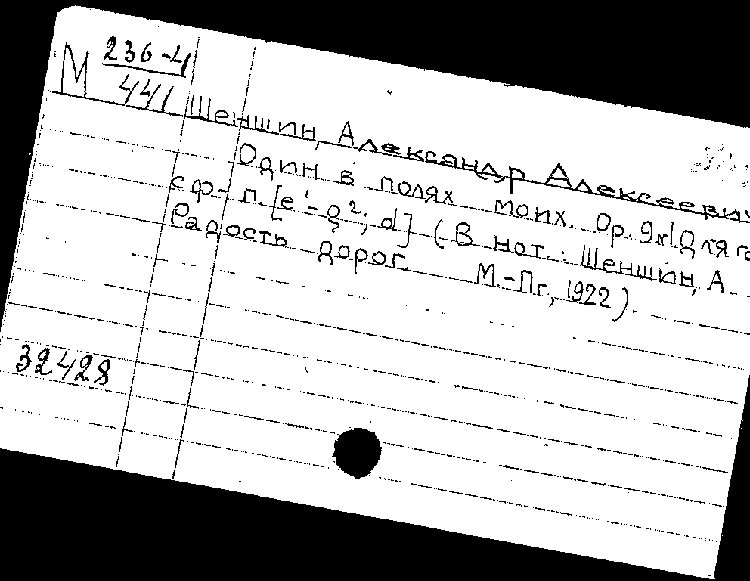 М 236-4
441
Шеншин, Александр Алексеевич
Один в полях моих. Ор. 9 № 1 Для г
с ф-п. [e¹-g²; d] (В нот.: Шеншин, А
Радость дорог. М.-Пг., 1922).
32428